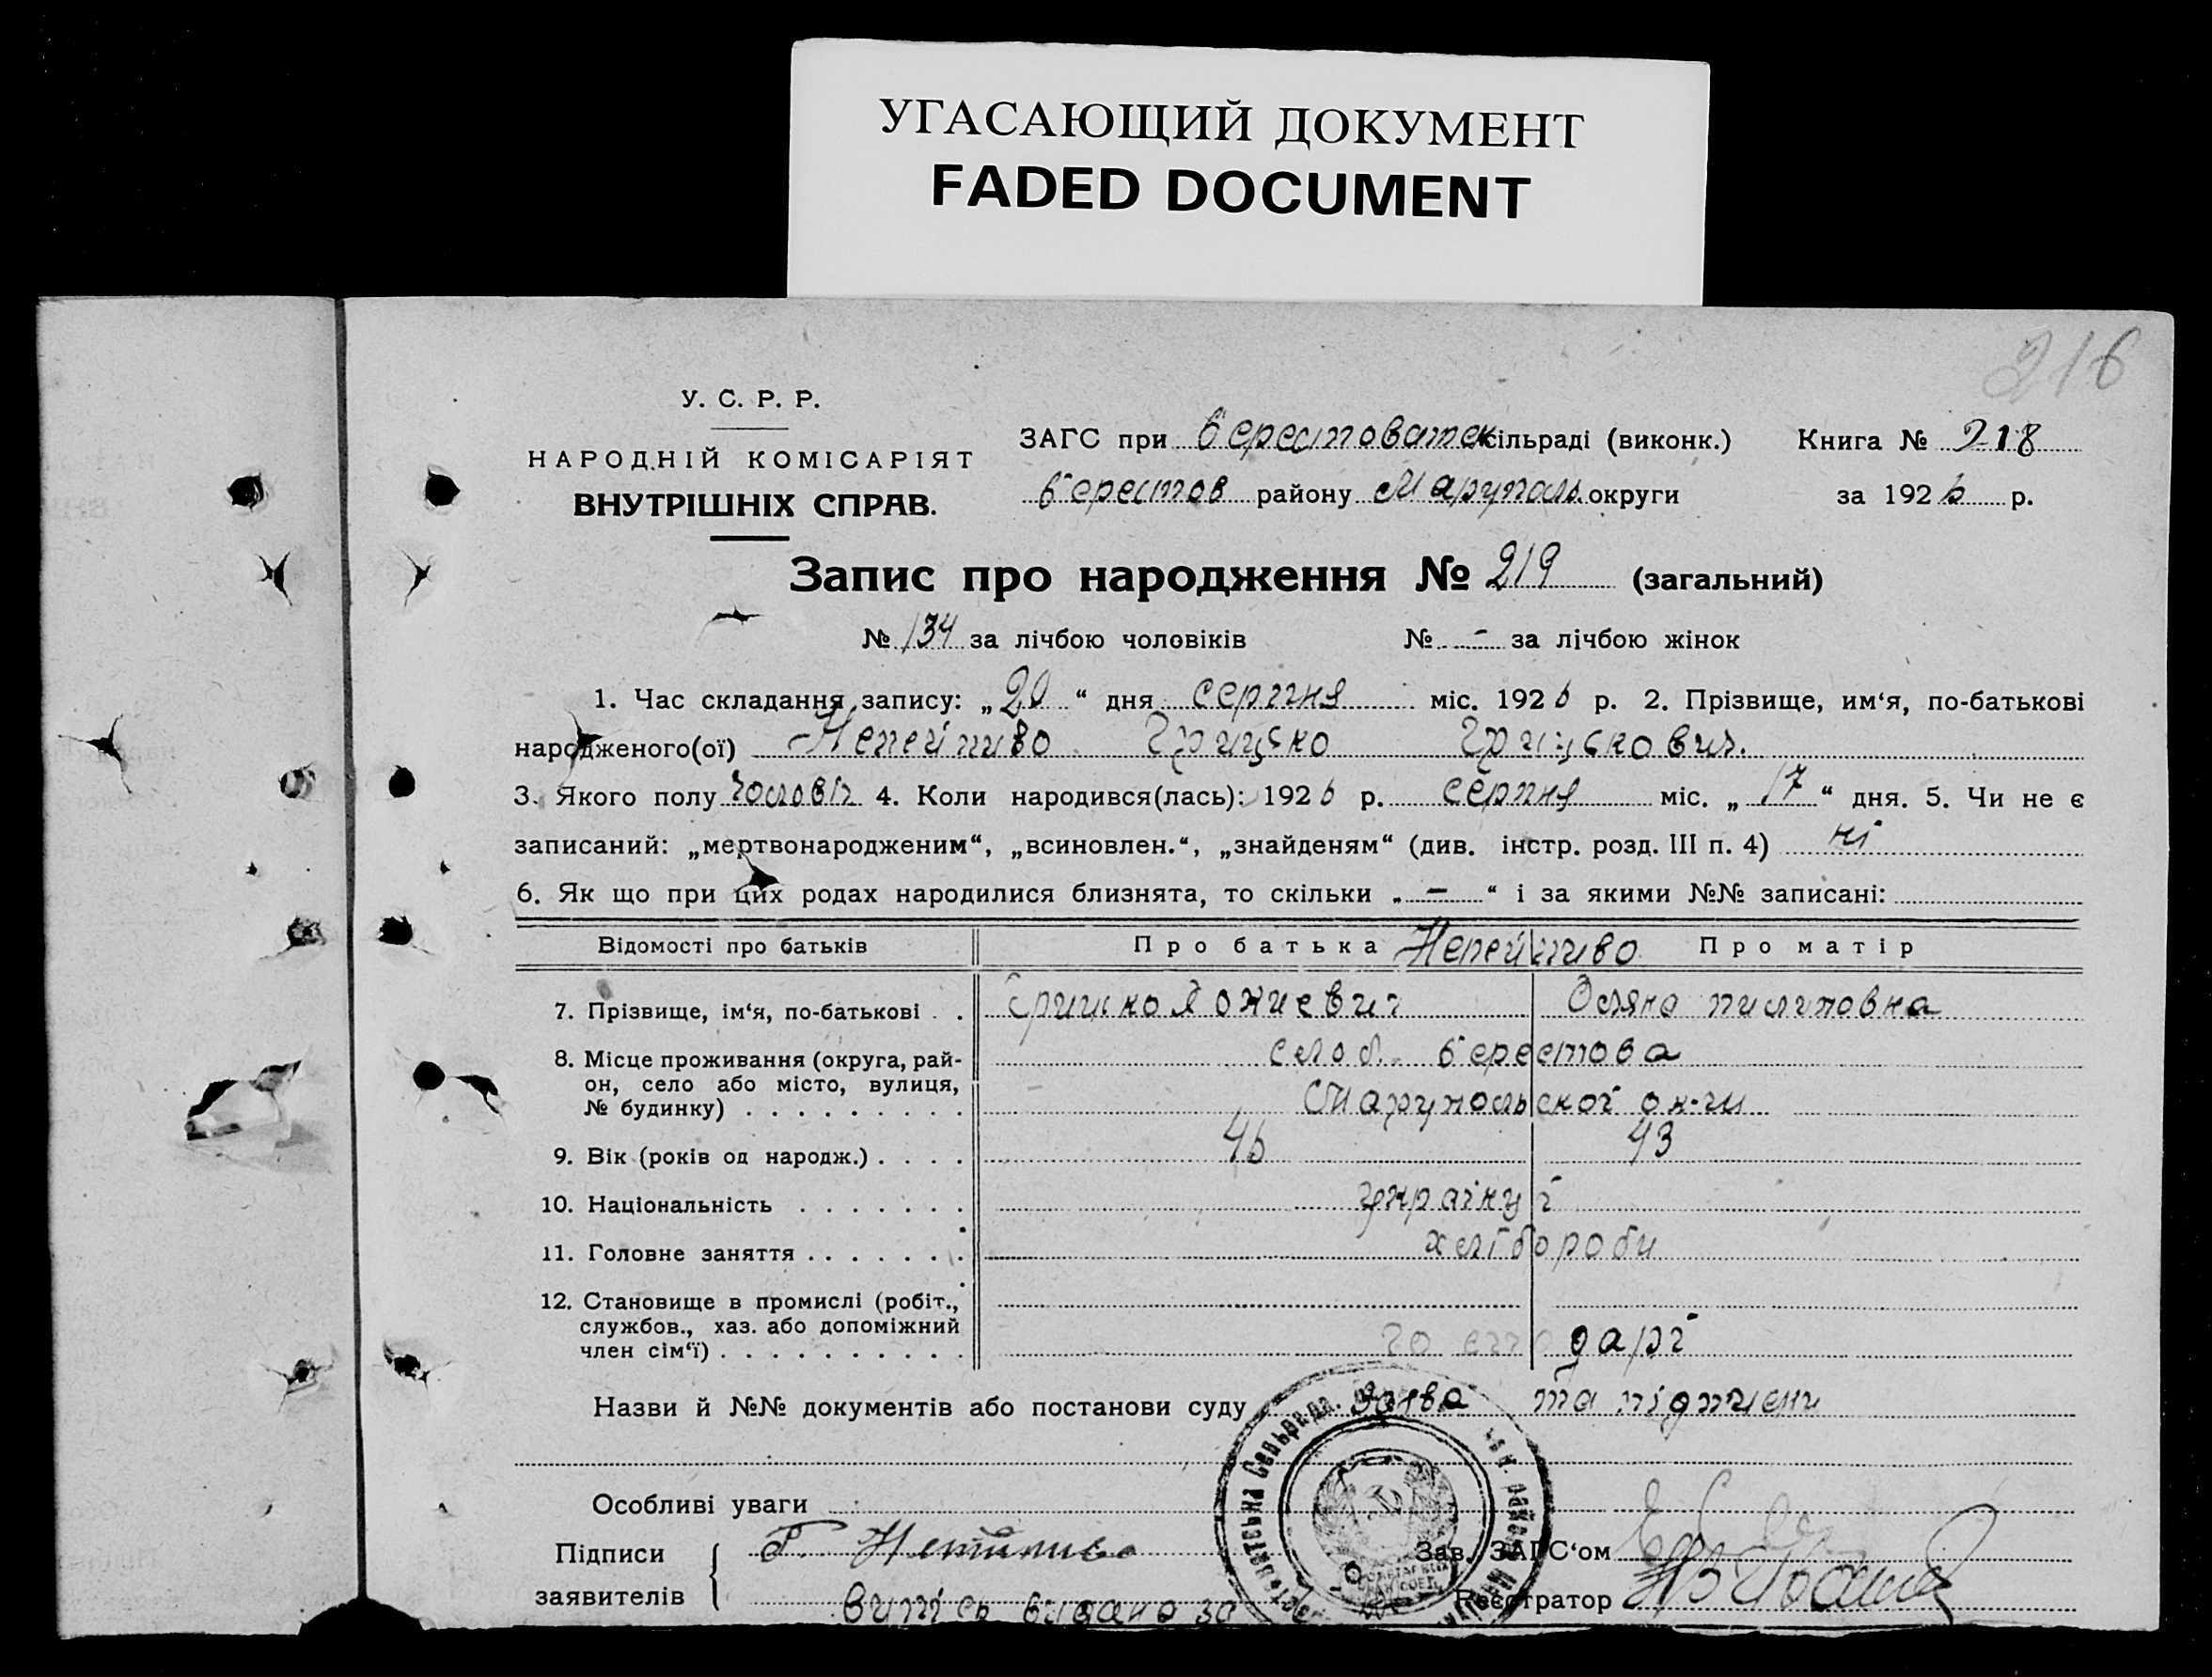 УГАСАЮЩИЙ ДОКУМЕНТ
FADED DOCUMENT
216
У. С. Р. Р.
НАРОДНІЙ КОМІСАРІЯТ
ВНУТРІШНІХ СПРАВ.
ЗАГС при Берестоватск сільраді (виконк.) Книга № 218
Берестов району Маруполь округи за 1926 р.
Запис про народження № 219 (загальний)
№ 134 за лічбою чоловіків № - за лічбою жінок
1. Час складання запису: „20“ дня серпня міс. 1926 р. 2. Прізвище, им‘я, по-батькові
народженого(ої) Непейпиво Грицько Грицькович.
3. Якого полу чоловік 4. Коли народився(лась): 1926 р. серпня міс. „17“ дня. 5. Чи не є
записаний: „мертвонародженим“, „всиновлен.“, „знайденям“ (див. інстр. розд. III п. 4) ні
6. Як що при цих родах народилися близнята, то скільки „-“ і за якими №№ записані:
Відомості про батьків Про батька Непейпиво Про матір
7. Прізвище, ім‘я, по-батькові . . Грицько Пилиповна
8. Місце проживання (округа, рай- слоб. Берестова
он, село або місто, вулиця,
№ будинку) . . . . . . . . . Марупольскої ок-ги
9. Вік (років од народж.) . . . . 46 43
10. Національність . . . . . . . українці
11. Головне заняття . . . . . . . хлібороби
12. Становище в промислі (робіт.,
службов., хаз. або допоміжний
член сім‘ї) . . . . . . . . . . господарі
Назви й №№ документів або постанови суду Заява та підписи
Особливі уваги
Підписи Г. Непийпиво Зав. ЗАГС‘ом
заявителів Випісь видано за Реєстратор